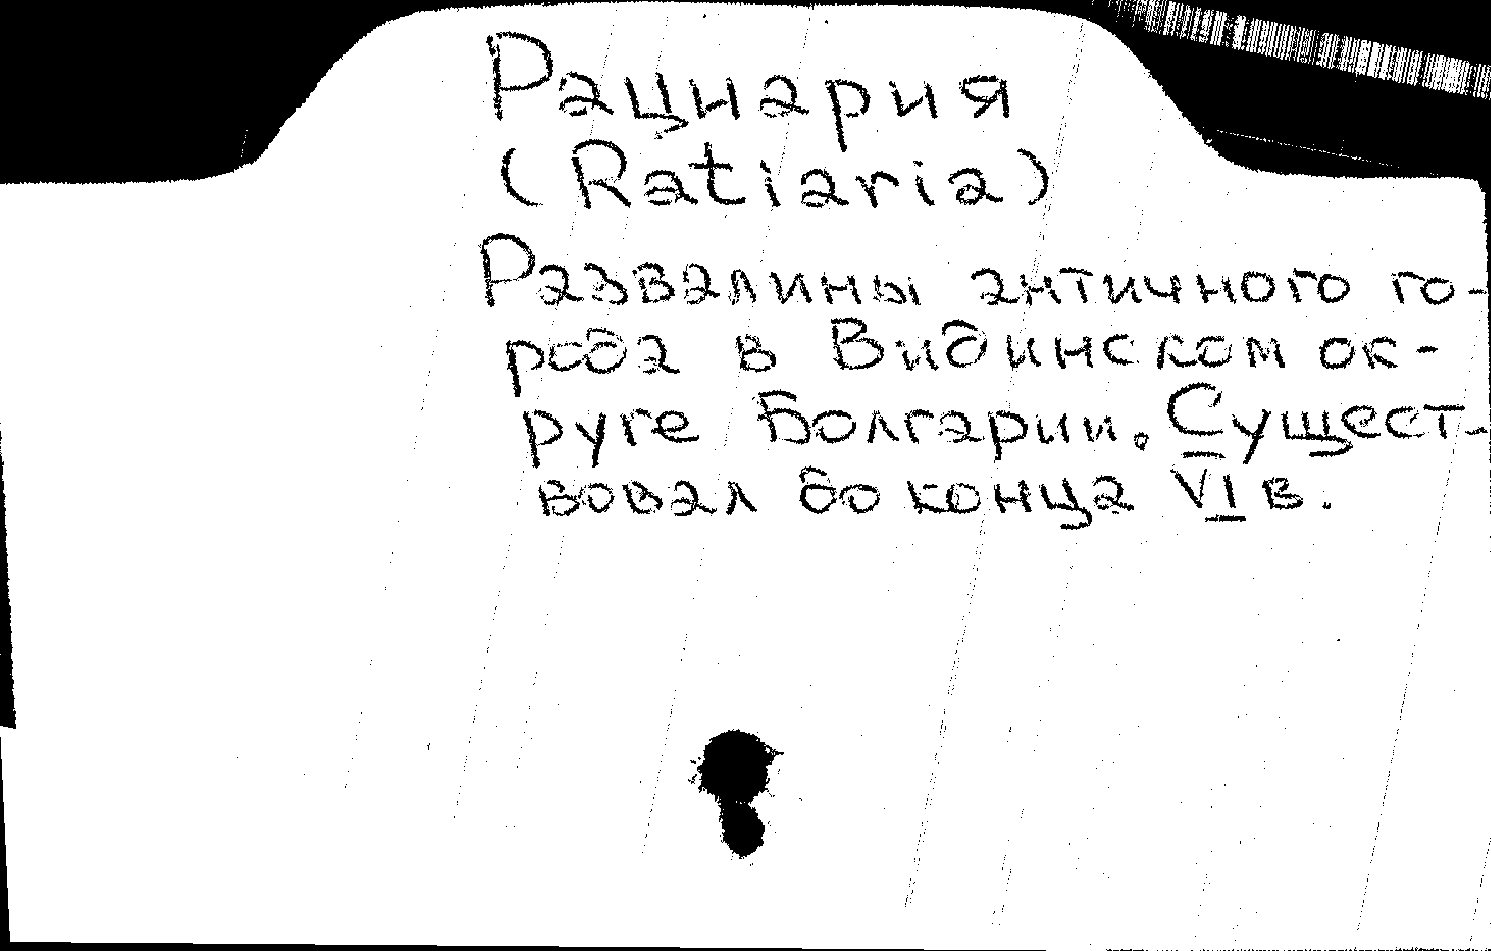 Рациария
(Ratiaria)
Развалины античного го-
рода в Видинском ок-
руге Болгарии. Сущест-
вовал до конца VI в.